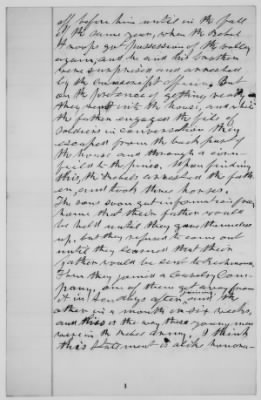 off before him until in the fall
of the same year, when the Rebel
troops got possession of the valley
again, and he and his brother
were surprised and arrested
by the conscript officers. But
on the pretense of getting ready
they went into the house, and while
the father engaged the file of
soldiers in conversation they
escaped from the back part of
the house and through a corn-
field to the pines. Upon finding
this, the Rebels arrested the fath-
er, and took three horses.
The sons soon got information from
home that their father would
be held until they gave themselves
up, but they refused to come out
until they learned that their
father would be sent to Richmond.
Then they joined a Cavalry Com-
pany, one of them got away from
it in ten days after joining and the
other in a month or six weeks,
and this is the way these young men
were in the Rebel Army. I think
this statement is alike honora-
1